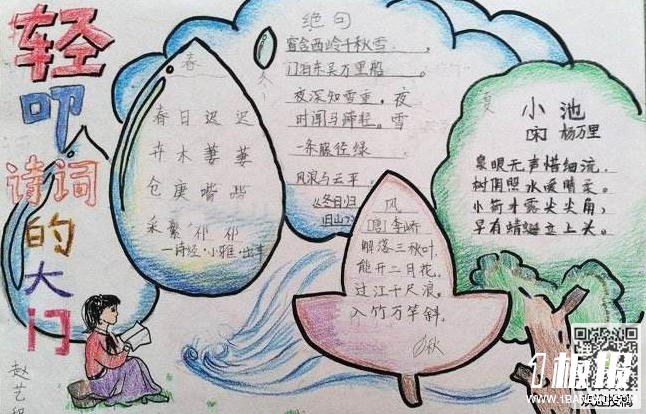 轻叩诗词的大门
春
春日迟迟
卉木萋萋
仓庚喈喈
采蘩祁祁
一诗经·小雅·出车
冬
绝句
窗含西岭千秋雪
门泊东吴万里船。
夜深知雪重,夜
时闻马蹄轻。雪
一条藤径绿
风浪与云平
《冬日归
旧山》
夏
小池
[宋] 杨万里
泉眼无声惜细流,
树阴照水爱晴柔。
小荷才露尖尖角,
早有蜻蜓立上头。
风
[唐] 李峤
解落三秋叶
能开二月花。
过江千尺浪。
入竹万竿斜。
秋
赵艺
1板报
WWW.1BAN
欢迎投稿